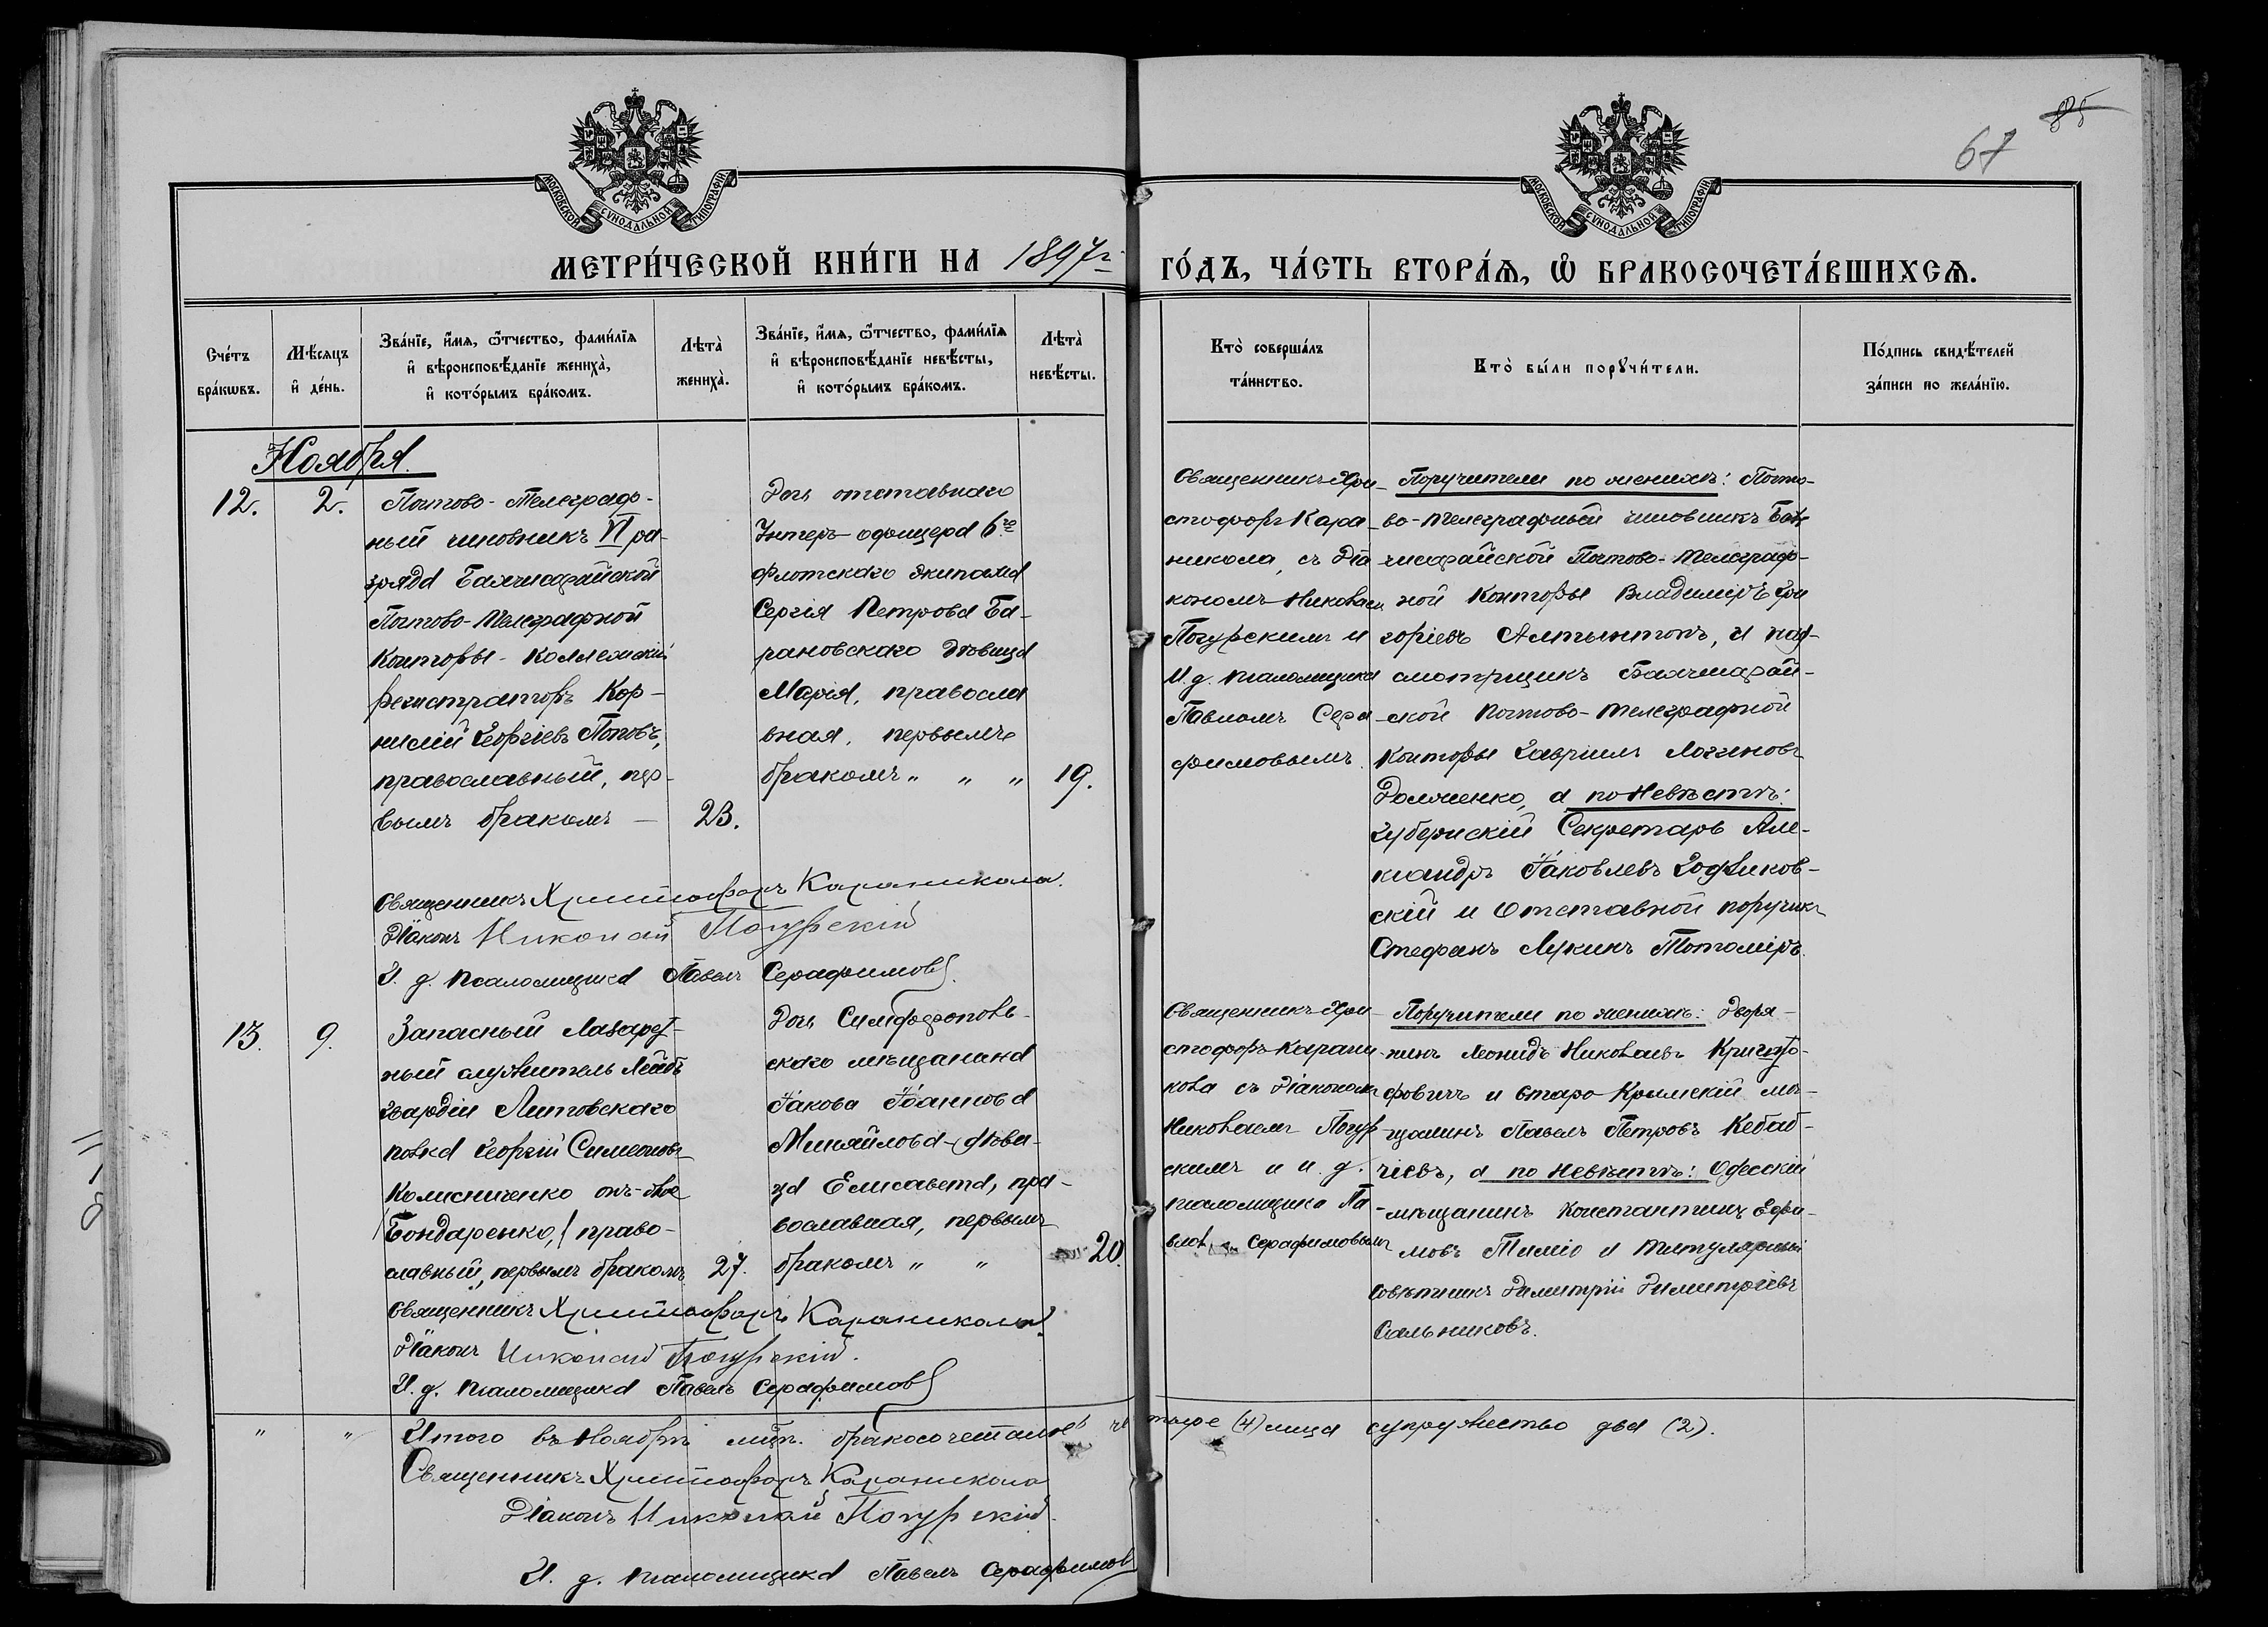 67
85
МОСКОВСКОЙ СѴНОДАЛЬНОЙ ТИПОГРАФІИ
МОСКОВСКОЙ СѴНОДАЛЬНОЙ ТИПОГРАФІИ
МЕТРИ́ЧЕСКОЙ КНИ́ГИ НА 1897 г. ГО́ДЪ, ЧА́СТЬ ВТОРА́Ѧ, Ѽ БРАКОСОЧЕТА́ВШИХСѦ.
Сче́тъ бра́кωвъ.
Мѣ́сяцъ и҆ де́нь.
Зва́нїе, и҆́мя, ѻ҆́тчество, фами́лїя и҆ вѣроисповѣ́данїе жениха̀, и҆ кото́рымъ бра́комъ.
Лѣта̀ жениха̀.
Зва́нїе, и҆́мя, ѻ҆́тчество, фами́лїя и҆ вѣроисповѣ́данїе невѣ́сты, и҆ кото́рымъ бра́комъ.
Лѣта̀ невѣ́сты.
Кто̀ соверша́лъ та́инство.
Кто̀ бы́ли порꙋчи́тели.
По́дпись свидѣ́телей за́писи по жела́нїю.
Ноября.
12.
2.
Почтово-Телеграф-
ный чиновникъ VI ра-
зряда Бахчисарайской
Почтово-Телеграфной
Конторы - Коллежскій
регистраторъ Кор-
нилій Георгіевъ Поповъ,
православный, пер-
вымъ бракомъ —
23.
Дочь отставнаго
Унтеръ-офицера 6го
флотскаго экипажа
Сергія Петрова Ба-
рановскаго дѣвица
Марія, правосла
вная, первымъ
бракомъ „ „ „
19.
Священникъ Хри-
стофоръ Кара-
никола, съ Діа
кономъ Николаем
Погурскимъ и
И. д. псаломщика
Павломъ Сера
фимовымъ.
Поручители по женихѣ: Почто-
во-Телеграфный чиновникъ Бах
чисарайской Почтово-Телеграф-
ной Конторы Владиміръ Гри
горіевъ Алтынтопъ, и над-
смотрщикъ Бахчисарай-
ской Почтово-Телеграфной
Конторы Гавріилъ Логгиновъ
Долженко, а по невѣстѣ:
Губернскій Секретарь Але-
ксандръ Іаковлевъ
скій и Отставной поручикъ
Стефанъ Лукинъ Тотоміръ.
Священникъ Христофоръ Караникола.
Діаконъ Николай Погурскій
И. д. псаломщика Павелъ Серафимовъ.
13.
9.
Запасный Лазарет-
ный служитель Лейбъ
Гвардіи Литовскаго
полка Георгій Симеоновъ
Колисниченко онъ-же
/Бондаренко,/ право-
славный, первымъ бракомъ.
27.
Дочь Симферополь-
скаго мѣщанина
Іакова Іоаннова
Михайлова-дѣви-
ца Елисавета, пра-
вославная, первымъ
бракомъ „ „
20.
Священникъ Хри-
стофоръ Карани-
кола съ Діакономъ
Николаемъ Погур
скимъ и и. д.
псаломщика Па
вломъ Серафимовымъ
Поручители по женихѣ: Дворя-
нинъ Леонидъ Николаевъ Кричто-
фовичъ и Старо-Крымскій мѣ-
щанинъ Павелъ Петровъ Кебаб-
чіевъ, а по невѣстѣ: Одесскій
мѣщанинъ Константинъ Ефи-
мовъ Тиміо и Титулярный
Совѣтникъ Димитрій Димитріевъ
Сальниковъ.
Священникъ Христофоръ Караникола.
Діаконъ Николай Погурскій.
И. д. псаломщика Павелъ Серафимовъ
„ „ Итого въ Ноябрѣ мѣц. бракосочеталось четыре (4) лица супружество два (2).
Священникъ Христофоръ Караникола
Діаконъ Николай Погурскій.
И. д. псаломщика Павелъ Серафимовъ